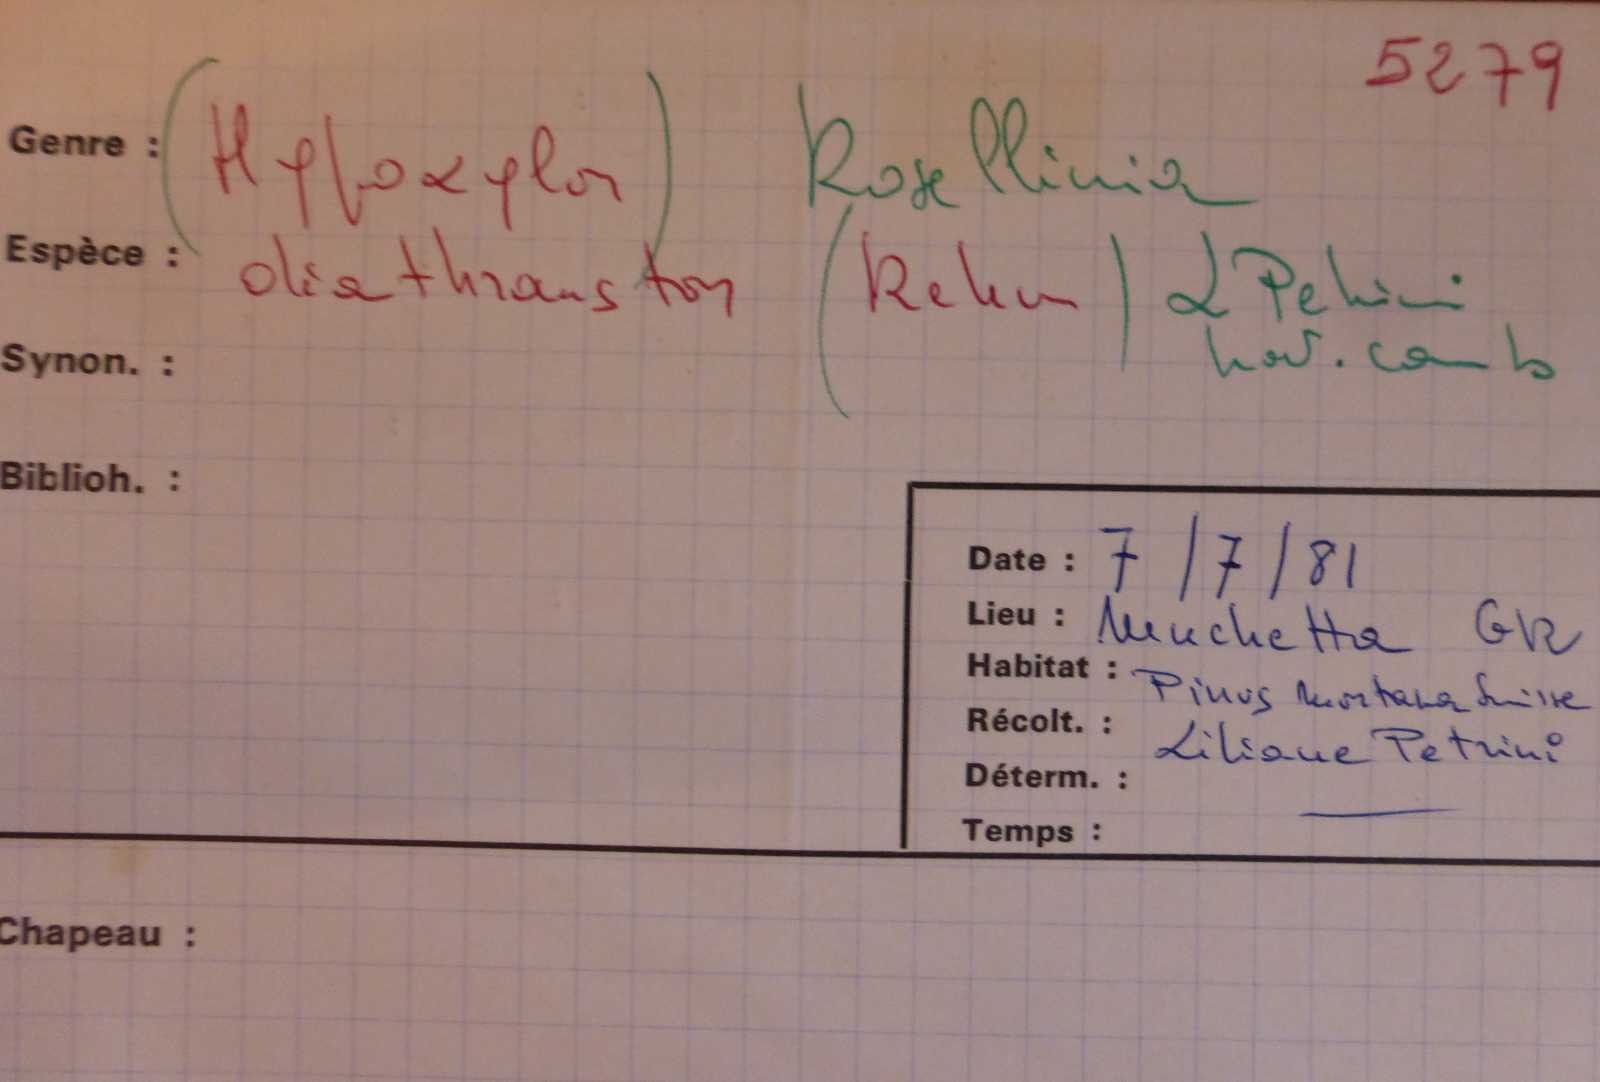 5279
Genre : (Hypoxylon) Rosellinia
Espèce : diathrauston (Rehm) L Petrini
nov. comb
Synon. :
Biblioh. :
Date : 7/7/81
Lieu : Muchetta GR
Habitat : Pinus montana Suisse
Récolt. : Liliane Petrini
Déterm. : —
Temps :
Chapeau :